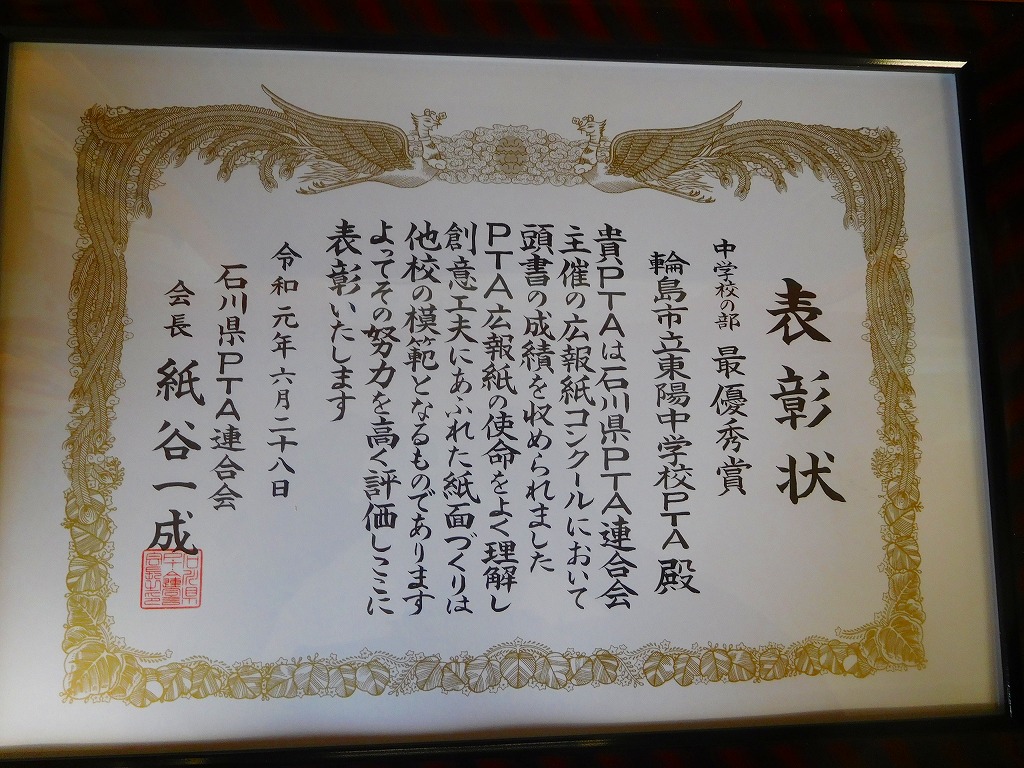 表彰状
中学校の部 最優秀賞
輪島市立東陽中学校PTA 殿
貴PTAは石川県PTA連合会
主催の広報紙コンクールにおいて
頭書の成績を収められました
PTA広報紙の使命をよく理解し
創意工夫にあふれた紙面づくりは
他校の模範となるものであります
よってその努力を高く評価しここに
表彰いたします
令和元年六月二十八日
石川県PTA連合会
会長 紙谷一成